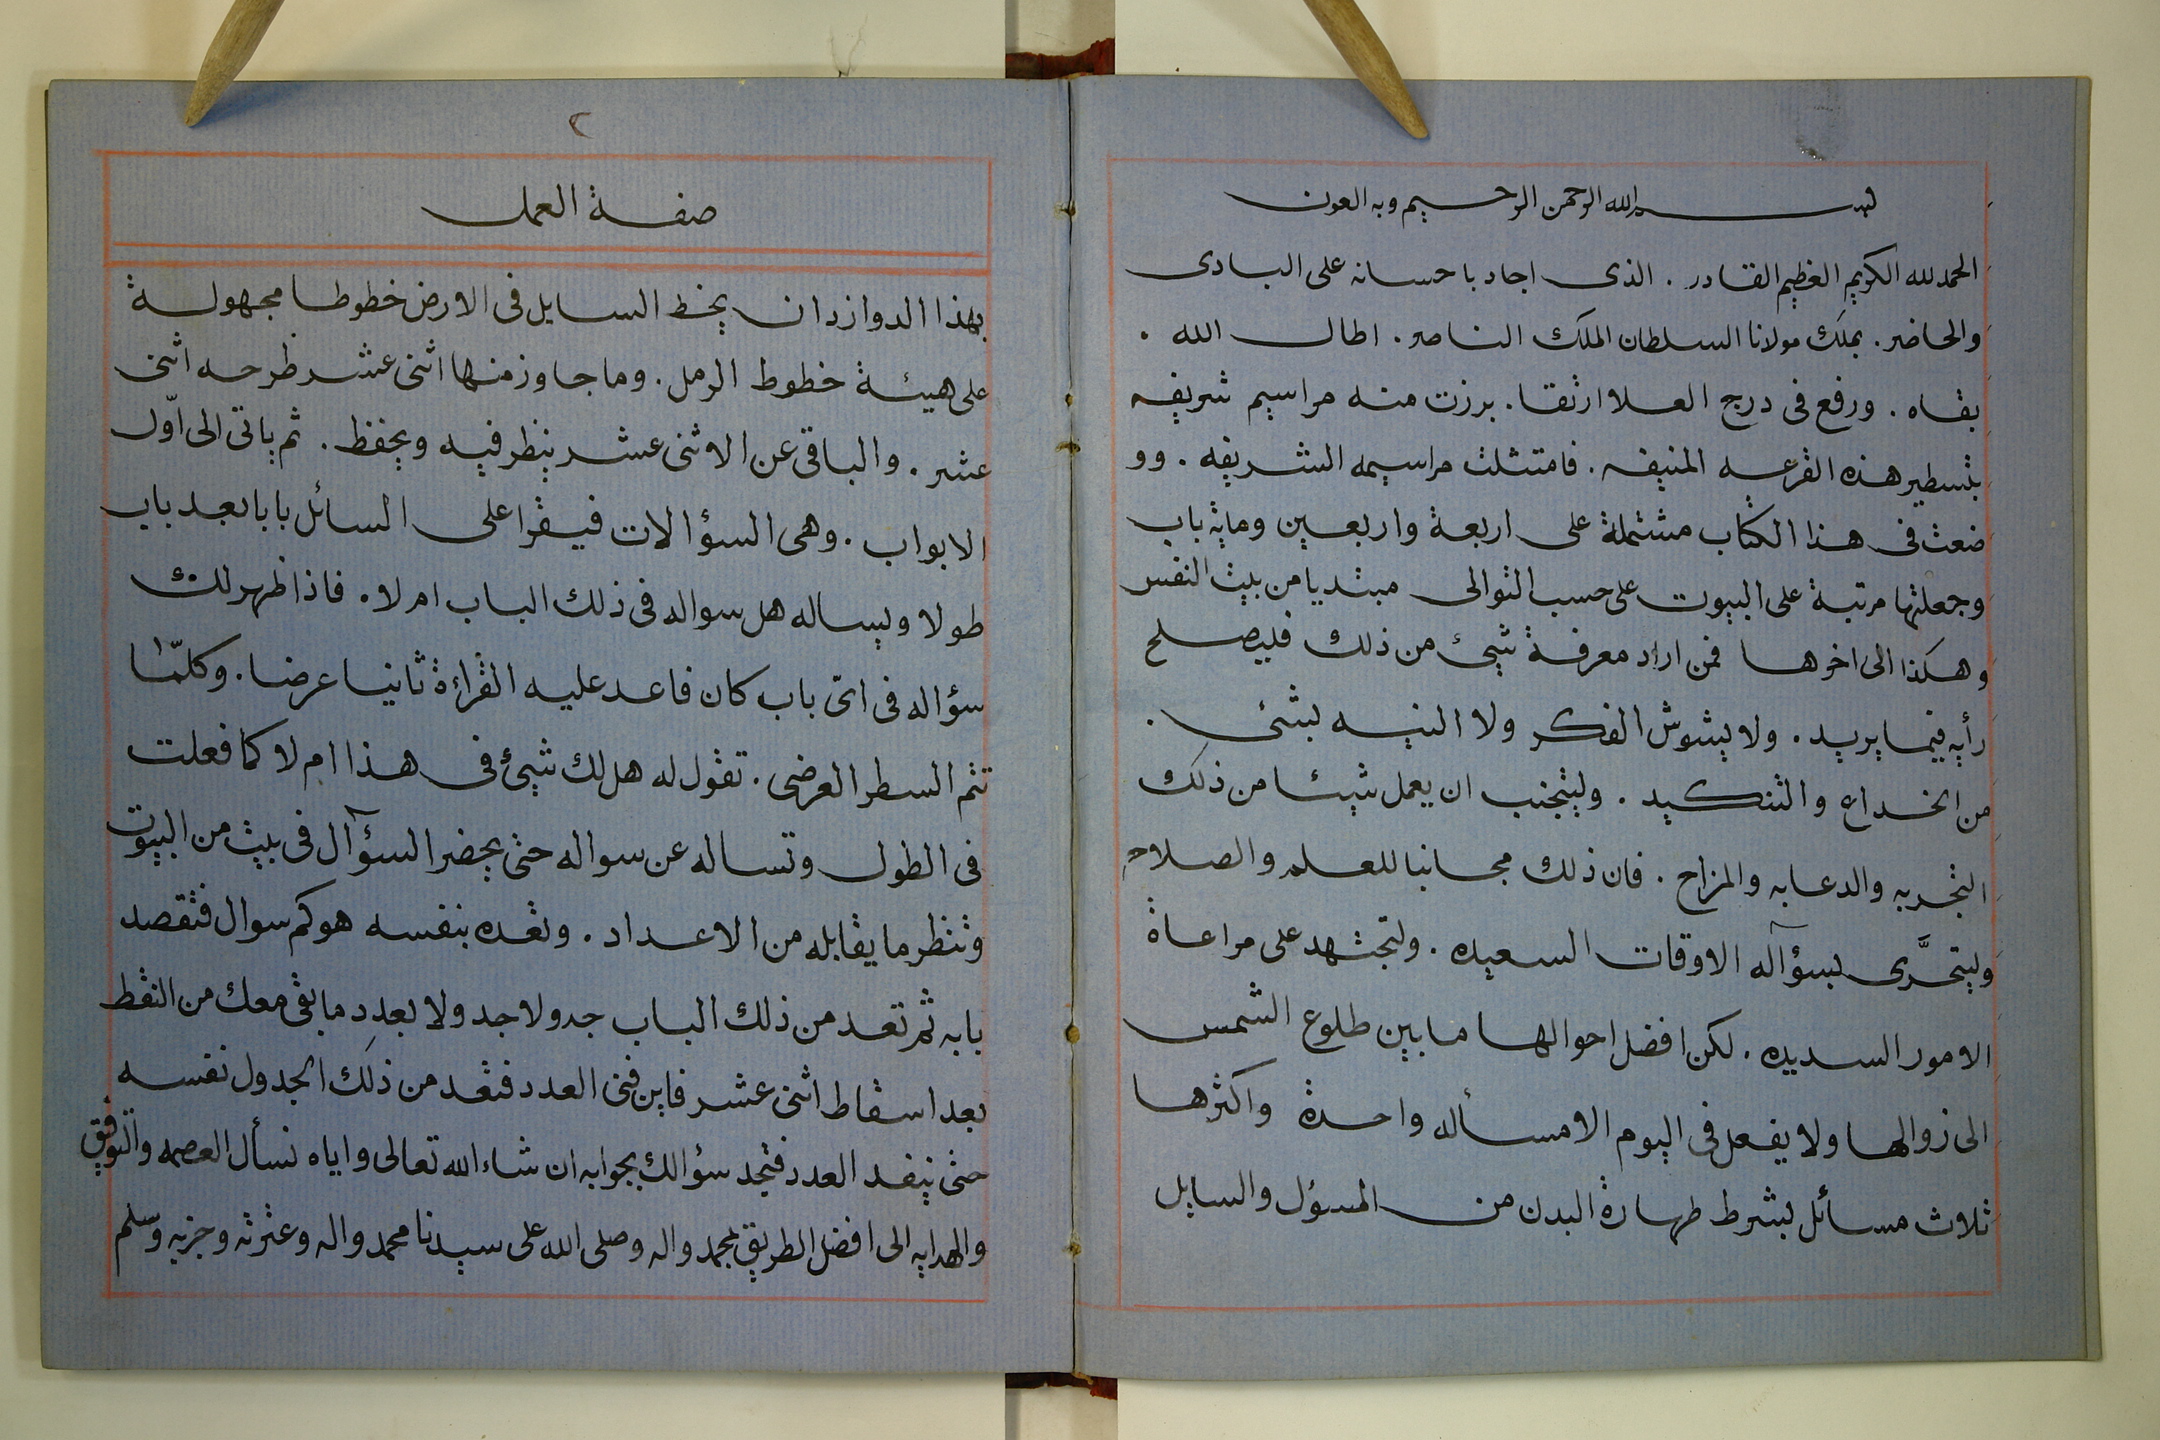 بســـــم الله الرحمن الرحيم وبه العون
الحمد لله الكريم العظيم القادر . الذى اجاد باحسانه على البادى
والحاضر . بملك مولانا السلطان الملك الناصر . اطال الله .
بقاه . ورفع فى درج العلا ارتقا . برزت منه مراسيم شريفه
بتسطير هذه القرعه المنيفه . فامتثلت مراسيمه الشريفه . وو
ضعت فى هذا الكتاب مشتملة على اربعة واربعين وماية باب
وجعلتها مرتبة على البيوت على حسب التوالى مبتديا من بيت النفس
وهكذا الى اخرها فمن اراد معرفة شيئ من ذلك فليصلح
رأيه فيما يريد . ولا يشوش الفكر ولا النيه بشئ .
من الخداع والتنكيد . وليتجنب ان يعمل شيئا من ذلك
التجربه والدعابه والمزاح . فان ذلك مجانبا للعلم والصلاح
وليتحرَّى بسؤآله الاوقات السعيده . ولتجتهد على مراعاة
الامور السديده . لكن افضل احوالها ما بين طلوع الشمس
الى زوالها ولا يفعل فى اليوم الا مسأله واحدة واكثرها
ثلاث مسائل بشرط طهارة البدن من المسؤل والسايل
٢
صفة العمل
بهذا الدوازدان يخط السايل فى الارض خطوطا مجهولة
على هيئة خطوط الرمل . وما جاوز منها اثنى عشر طرحه اثنى
عشر . والباقى عن الاثنى عشر ينظر فيه ويحفظ . ثم ياتى الى اوّل
الابواب . وهى السؤالات فيقرا على السائل بابا بعد باب
طولا ويساله هل سواله فى ذلك الباب ام لا . فاذا ظهر لك
سؤاله فى اىّ باب كان فاعد عليه القراءة ثانيا عرضا . وكلمّا
تتم السطر العرضى . تقول له هل لك شيئ فى هذا ام لا كما فعلت
فى الطول وتساله عن سواله حتى يحضر السؤآل فى بيت من البيوت
وتنظر ما يقابله من الاعداد . وتعده بنفسه هوكم سوال فتقصد
بابه ثم تعد من ذلك الباب جدولا جدولا بعدد ما بقى معك من النقط
بعد اسقاط اثنى عشر فاين فنى العدد فتعد من ذلك الجدول نفسه
حتى ينفد العدد فتجد سؤالك بجوابه ان شاء الله تعالى واياه نسأل العصمه والتوفيق
والهدايه الى افضل الطريق بمحمد واله وصلى الله على سيدنا محمد واله وعترته وحزبه وسلم